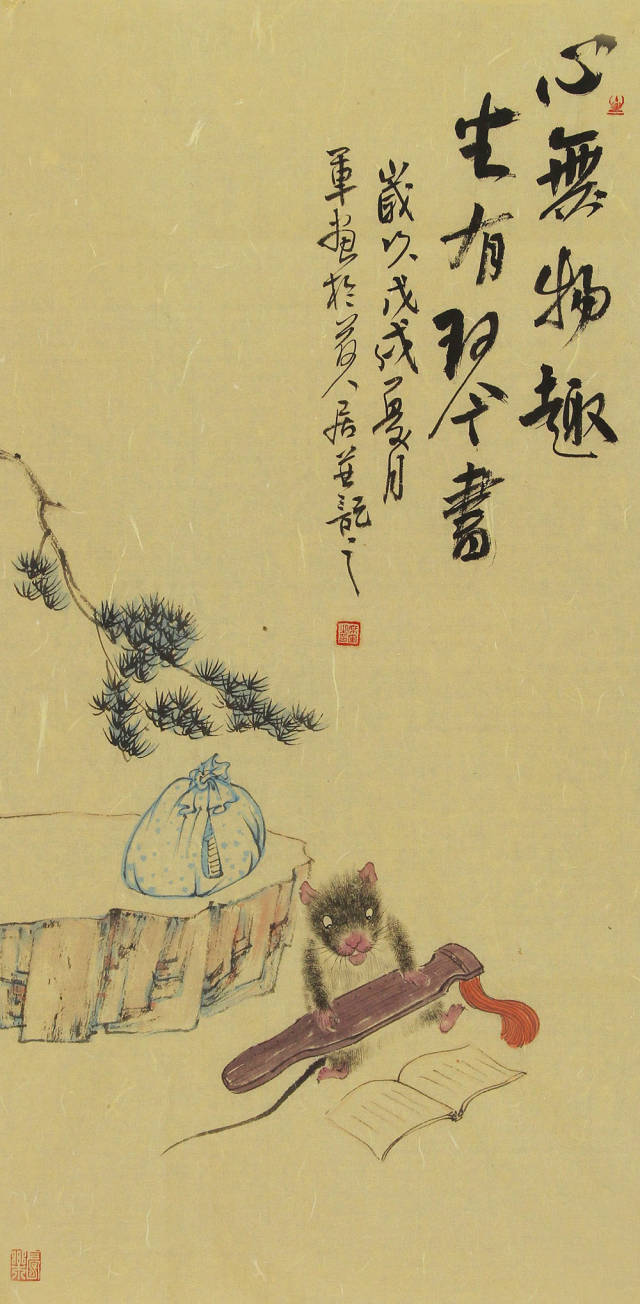 心無物趣
坐有琴書
歲次戊戌夏月
軍畫於人居並記之